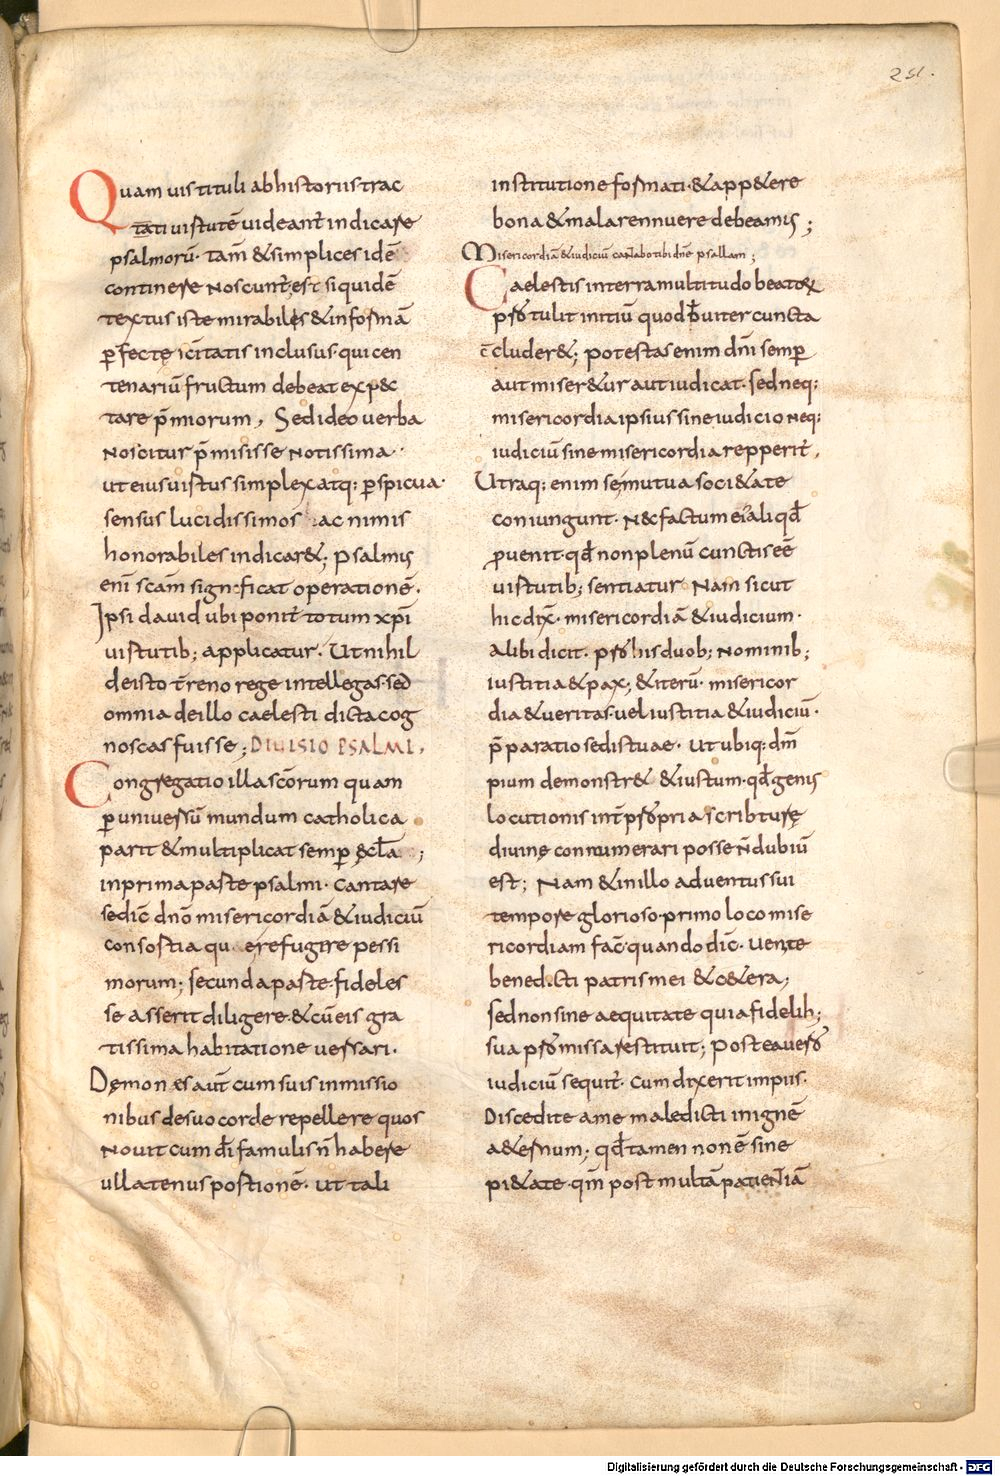 251.
Quam uis tituli ab historiis trac
tati uirtutē uideant̄ indicare
psalmorū. tam̄ & simplices idē
continere noscunt̄, est siquidē
textus iste mirabilis & informā
ꝑfectę sc̄itatis inclusus. qui cen
tenariū fructum debeat exp&c
tare p̄miorum, Sed ideo uerba
noscitur p̄misisse notissima.
ut eius uirtus simplex atq: ꝑspicua.
sensus lucidissimos ac nimis
honorabiles indicar&; psalmus
eni scām significat operationē.
Ipsi dauid ubi ponit̄ totum xp̄i
uirtutib; applicatur. Ut nihil
de isto t̄reno rege intellegas. sed
omnia de illo caelesti dicta cog
noscas fuisse; DIUISIO PSALMI,
Congregatio illa sc̄orum quam
ꝑ uniuersū mundum catholica
parit & multiplicat semꝑ eccl̄a;
in prima parte psalmi. Cantare
se dic̄ dn̄o misericordiā & iudiciū
consortia qu erefugire pessi
morum; secunda parte. fideles
se asserit diligere. & cū eis gra
tissima habitatione uersari.
Demones aut̄ cum suis inmissio
nibus de suo corde repellere quos
nouit cum dī famulis n̄ habere
ullatenus portionē. ut tali
institutione formati. & app&ere
bona & mala rennuere debeamus;
Misericordiā & iudiciū cantabo tibi dn̄e psallam;
Caelestis in terra multitudo beatoꝝ
protulit initiū quod breuiter cuncta
c̄cluder&; potestas enim dn̄i semꝑ
aut miser&ur aut iudicat. sed neq:
misericordia ipsius sine iudicio neq:
iudiciū sine misericordia repperit̄,
Utraq: enim se mutua soci&ate
coniungunt. N&c factum ei aliqd̄
ꝓuenit. qd̄ non plenū cunctis eē
uirtutib; sentiatur Nam sicut
hic dix̄. misericordiā & iudicium.
Alibi dicit. pro his duob; nominib;
iustitia & pax, & iterū. misericor
dia & ueritas. uel iustitia & iudiciū.
p̄paratio sedis tuae. Ut ubiq: dn̄m
pium demonstr& & iustum. qd̄ genus
locutionis int̄ propria scribturę
diuinę connumerari posse n̄ dubiū
est; Nam & in illo aduentus sui
tempore glorioso. primo loco mise
ricordiam fac̄. quando dic̄. uenite
benedicti patris mei & c&era,
sed non sine aequitate quia fidelib;
sua promissa restituit; Postea uero
iudiciū sequit̄. Cum dixerit impiis.
Discedite a me maledicti in ignē
a&ernum; qd̄ tamen non ē sine
pi&ate. qm̄ post multā patientiā
Digitalisierung gefördert durch die Deutsche Forschungsgemeinschaft - DFG